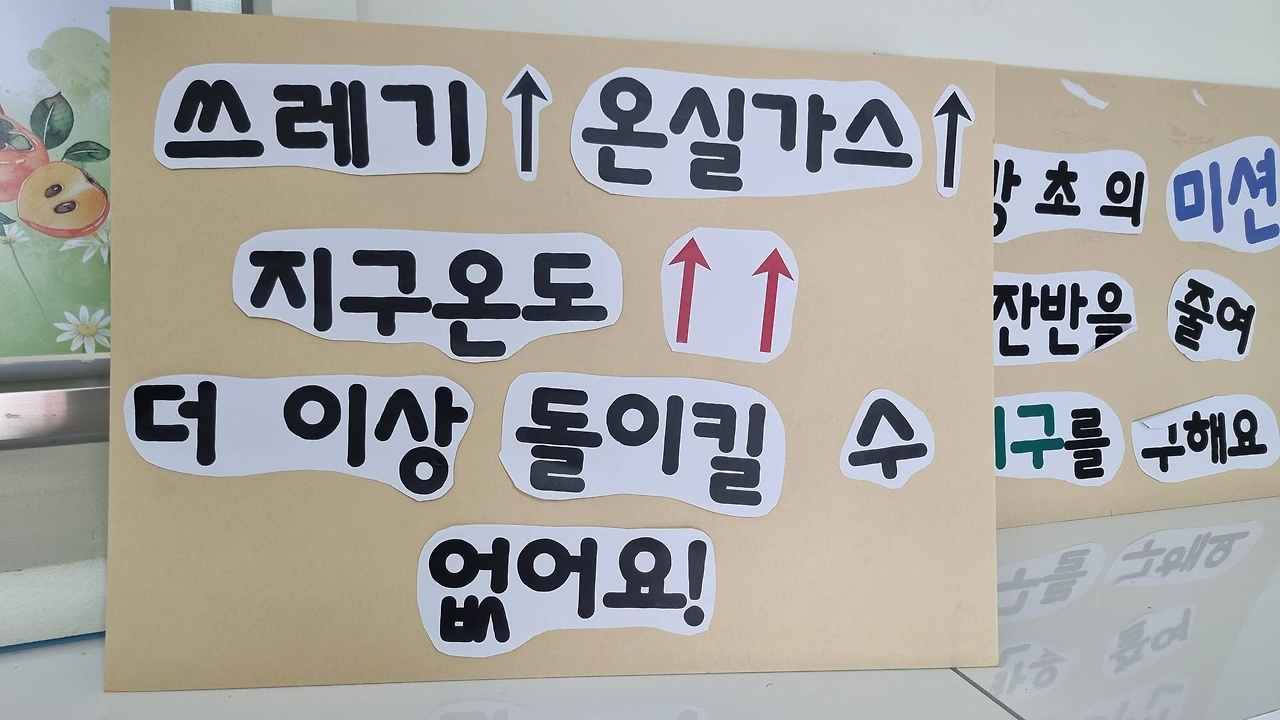 쓰레기 ↑ 온실가스 ↑
지구온도 ↑ ↑
더 이상 돌이킬 수
없어요!
초의 미션
잔반을 줄여
지구를 구해요